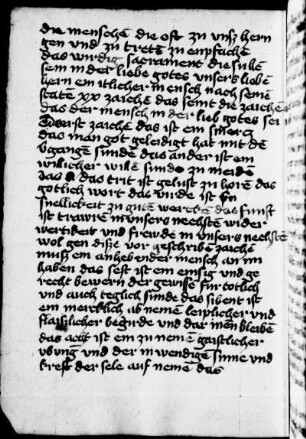 die menschen die oft zu unserm hern
gen und zu trett zu enpfachen
das wirdig sacrament die sullen
sein in der liebe gotes unsers lieben
hern ein itlicher mensch nach seinem
state xx zaichen das seint die zaichen
das der mensch in der lieb gotes sei
erst zaichen das ist ein smerz
das man got geleidigt hat mit den
vgangen sunden das ander ist ein
williclicher willen sunde zu meiden
das das trit ist gelust zu horen das
gotlich wort das virde ist ein
snellickeit zu guten wercken das funft
ist trawren in unsers nechsten wider
wertikeit und frewde in unsers nechsten
wol gen diße vor geschriben zaichen
muß ein anhebender mensch an im
haben das sest ist ein emsig und ge
recht bewern der gewisse fur totlich
und auch teglich sunde das sibent ist
ein mercklich ab nemen leiplicher und
flaischlicher begirde und dar inen bleiben
das acht ist ein zu nemen gaistlicher
ubung und der inwendigen sinne und
kreft der sele auf nemen das